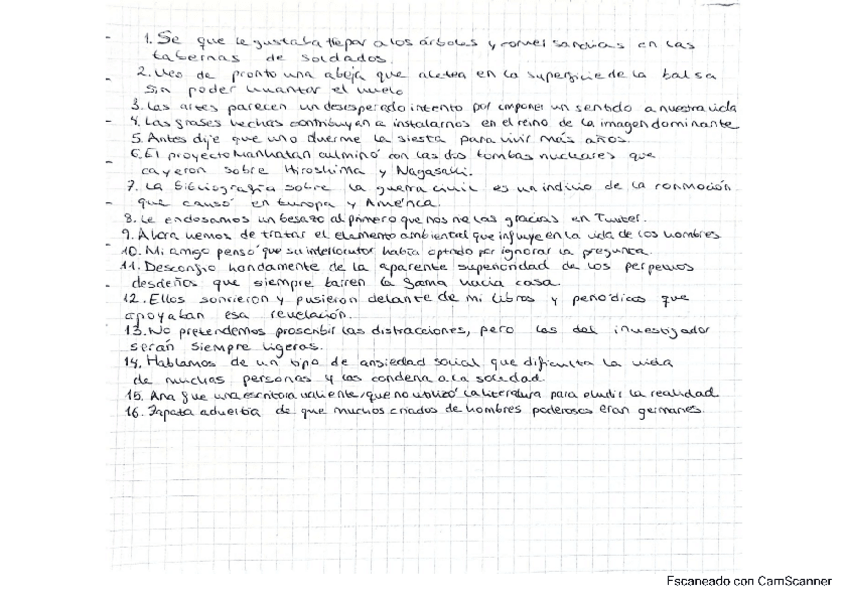 1. Se que le gustaba trepar a los árboles y comer sandías en las
tabernas de soldados.
2. Veo de pronto una abeja que aletea en la superficie de la balsa
sin poder levantar el vuelo
3. Las artes parecen un desesperado intento por imponer un sentido a nuestra vida
4. Las frases hechas contribuyen a instalarnos en el reino de la imagen dominante
5. Antes dije que uno duerme la siesta para vivir más años.
6. El proyecto Manhatan culminó con las dos bombas nucleares que
cayeron sobre Hiroshima y Nagasaki.
7. La bibliografía sobre la guerra civil es un indicio de la conmoción
que causó en Europa y América.
8. Le endosamos un besazo al primero que nos da las gracias en Twiter.
9. Ahora hemos de tratar el elemento ambiental que influye en la vida de los hombres
10. Mi amigo pensó que su interlocutor había optado por ignorar la pregunta.
11. Desconfío hondamente de la aparente superioridad de los perpetuos
desdeños que siempre barren la fama hacia casa.
12. Ellos sonrieron y pusieron delante de mi libros y periódicos que
apoyaban esa revelación.
13. No pretendemos proscribir las distracciones, pero las del investigador
serán siempre ligeras.
14. Hablamos de un tipo de ansiedad social que dificulta la vida
de muchas personas y las condena a la soledad.
15. Ana fue una escritora valiente, que no utilizó la literatura para eludir la realidad
16. Zapata advertía de que muchos criados de hombres poderosos eran germanes.
Escaneado con CamScanner